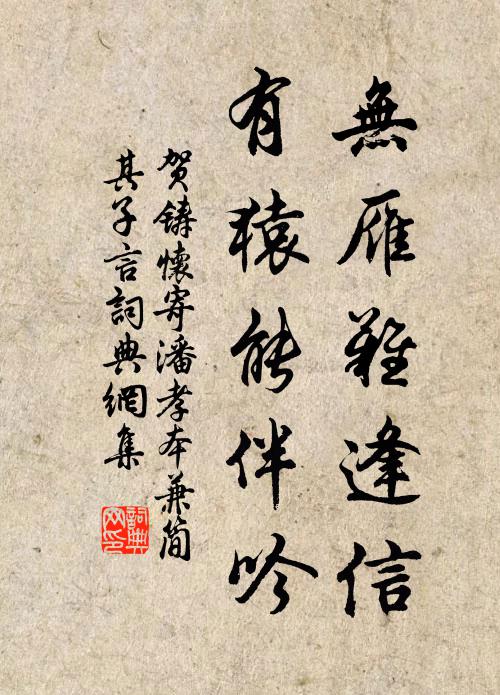 無雁難逢信
有猿能伴吟
賀鑄懷寄潘孝本兼簡
其子言詞典網集
詞典
网印